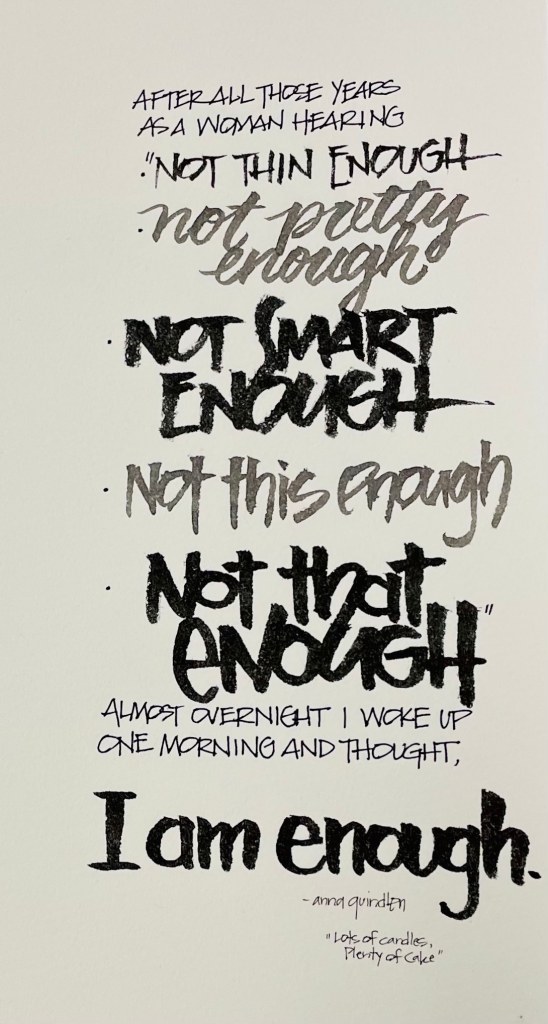 AFTER ALL THOSE YEARS
AS A WOMAN HEARING
· "NOT THIN ENOUGH
· not pretty
enough
· NOT SMART
ENOUGH
· Not this enough
· Not that
eNOUGH"
ALMOST OVERNIGHT I WOKE UP
ONE MORNING AND THOUGHT,
I am enough.
- anna quindlen
"Lots of candles,
Plenty of Cake"